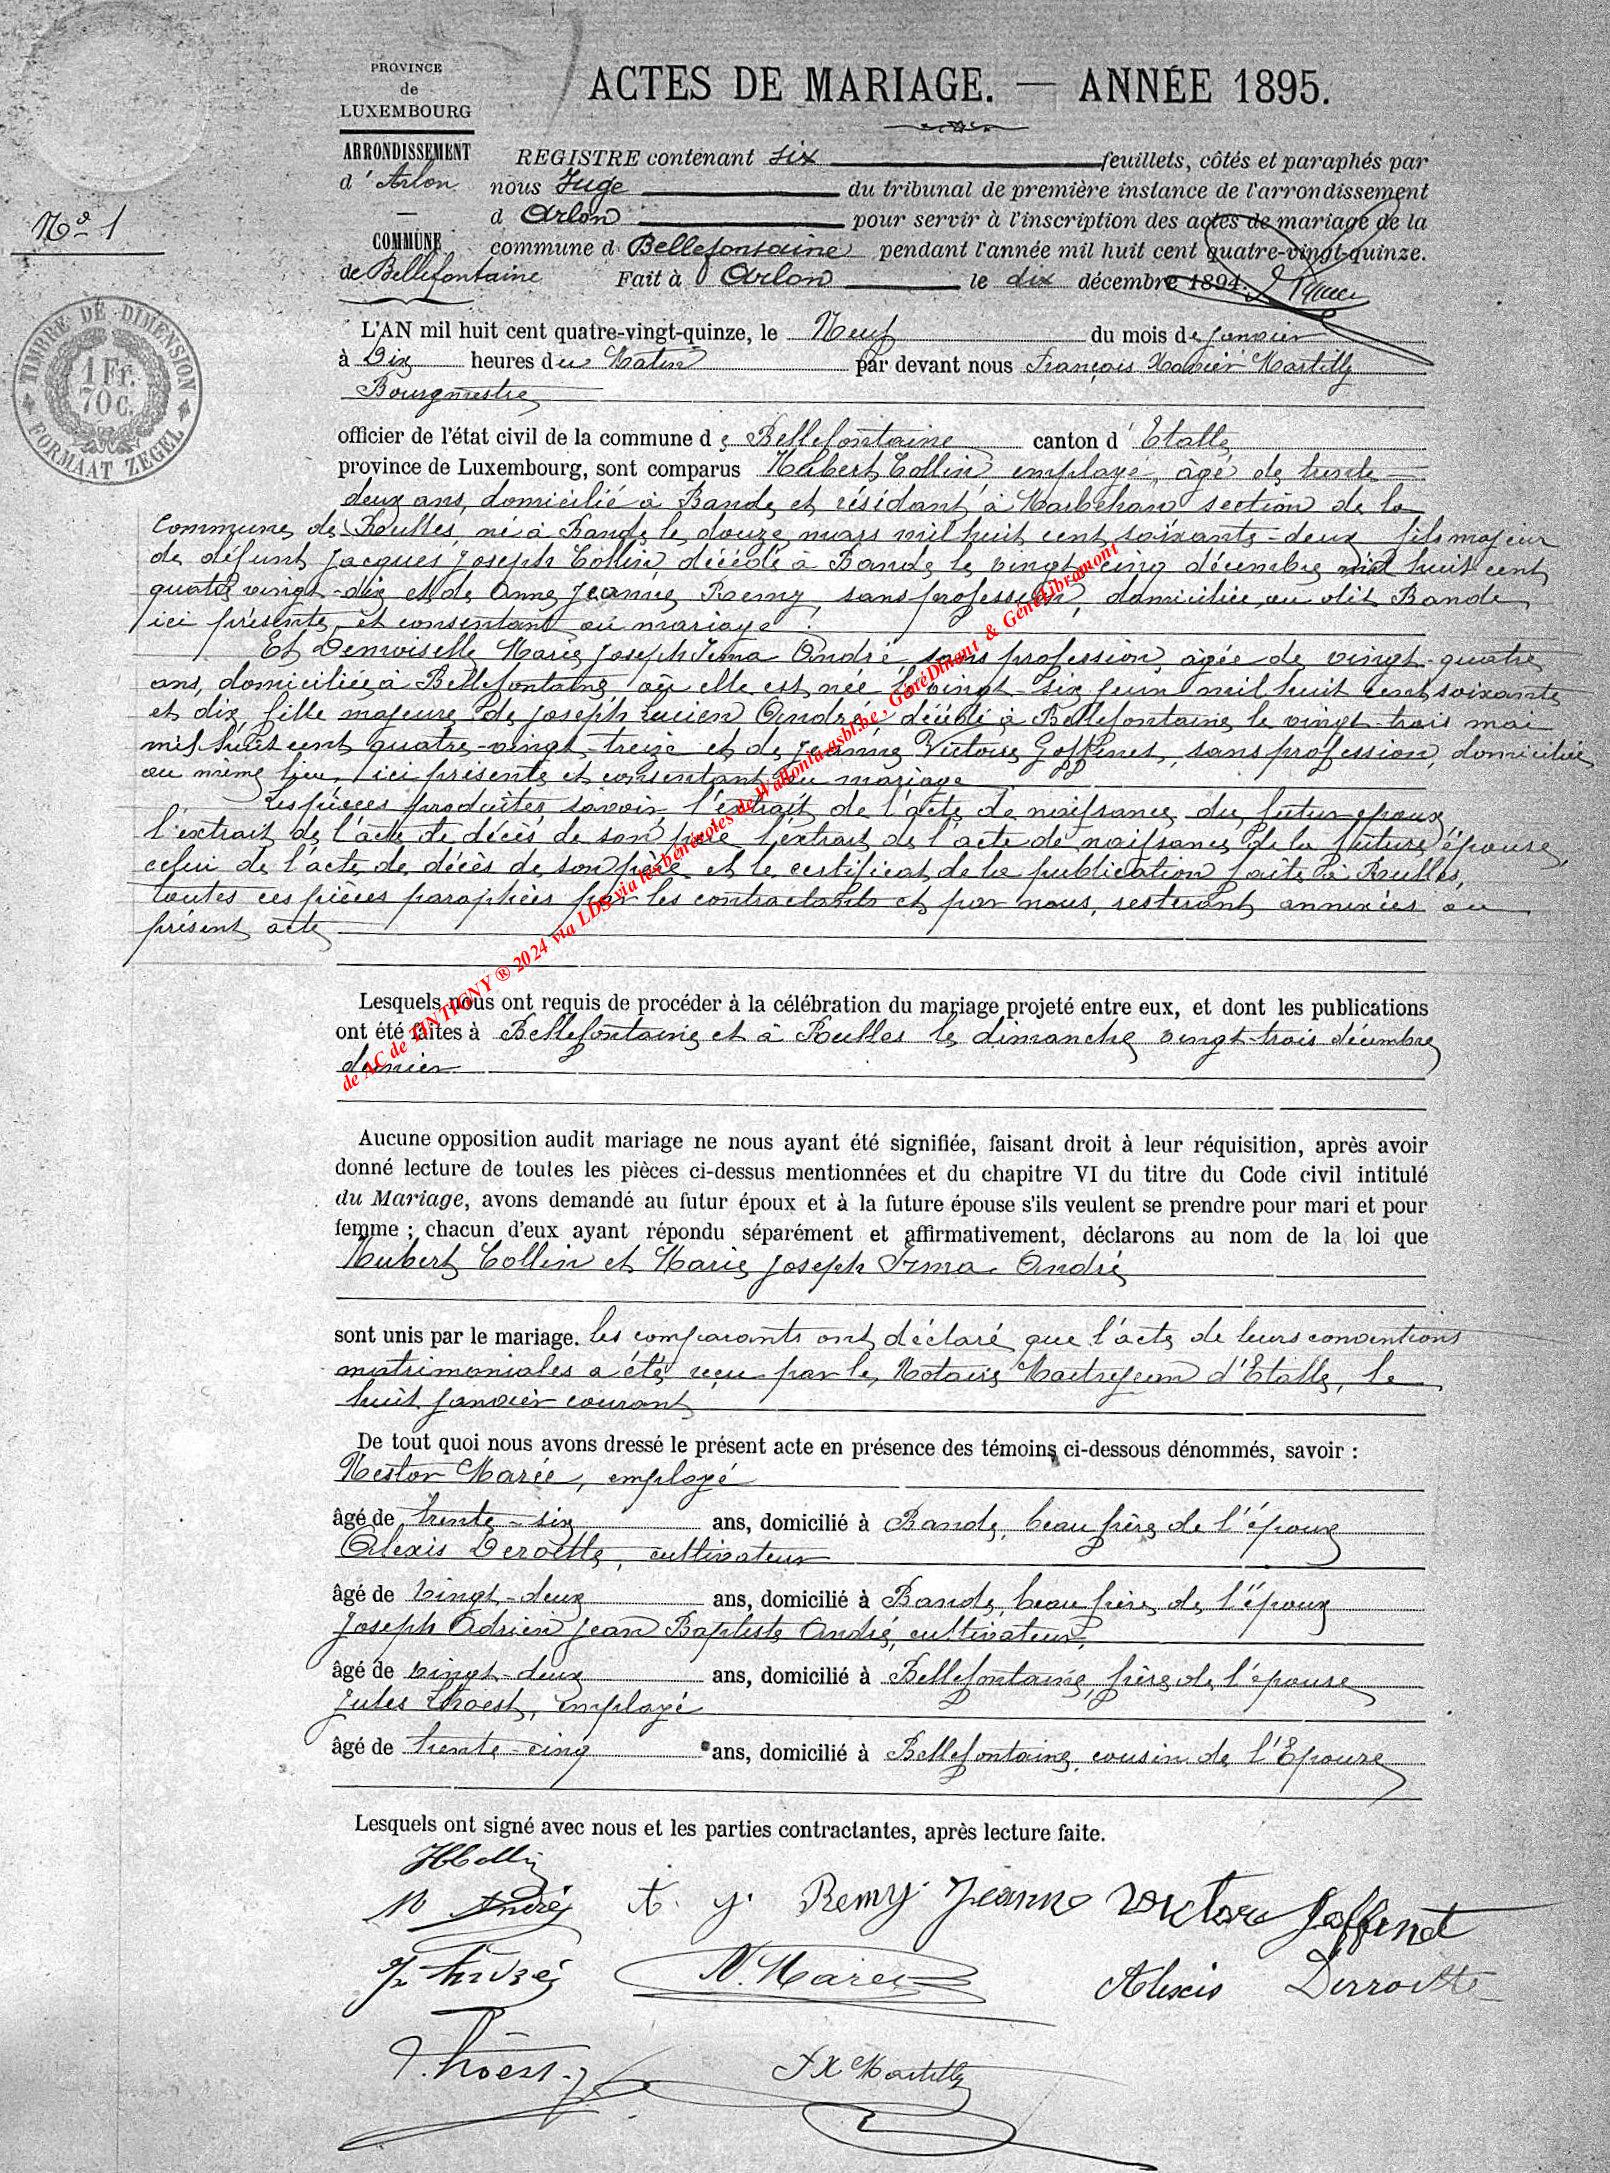 PROVINCE
de
LUXEMBOURG
ARRONDISSEMENT
d'Arlon
COMMUNE
de Bellefontaine
ACTES DE MARIAGE. — ANNÉE 1895.
REGISTRE contenant six feuillets, côtés et paraphés par
nous Juge du tribunal de première instance de l'arrondissement
d Arlon pour servir à l'inscription des actes de mariage de la
commune d Bellefontaine pendant l'année mil huit cent quatre-vingt-quinze.
Fait à Arlon le dix décembre 1894.
No 1
TIMBRE DE DIMENSION
1 Fr.
70 c.
FORMAAT ZEGEL
L'AN mil huit cent quatre-vingt-quinze, le Neuf du mois de janvier
à Dix heures du Matin par devant nous François Xavier Martilly
Bourgmestre
officier de l'état civil de la commune de Bellefontaine canton d'Etalle
province de Luxembourg, sont comparus Hubert Collin employé, âgé de trente
deux ans, domicilié à Bande et résidant à Marbehan section de la
Commune de Rulles, né à Bande le douze mars mil huit cent soixante-deux fils majeur
de défunt Jacques Joseph Collin décédé à Bande le vingt cinq décembre mil huit cent
quatre vingt-dix et de Anne Jeanne Remy, sans profession, domiciliée au dit Bande
ici présente et consentant au mariage.
Et Demoiselle Marie Joseph Irma André sans profession, âgée de vingt-quatre
ans, domiciliée à Bellefontaine où elle est née le vingt-six juin mil huit cent soixante
et dix, fille majeure de Joseph Lucien André décédé à Bellefontaine le vingt-trois mai
mil huit cent quatre-vingt-treize et de Jeanne Victoire Goffinet, sans profession, domiciliée
au même lieu, ici présente et consentant au mariage
Les pièces produites savoir l'extrait de l'acte de naissance du futur époux,
l'extrait de l'acte de décès de son père l'extrait de l'acte de naissance de la future épouse,
celui de l'acte de décès de son père et le certificat de la publication faite à Rulles,
toutes ces pièces paraphées par les contractants et par nous, resteront annexées au
présent acte
Lesquels nous ont requis de procéder à la célébration du mariage projeté entre eux, et dont les publications
ont été faites à Bellefontaine et à Rulles le dimanche vingt-trois décembre
dernier
Aucune opposition audit mariage ne nous ayant été signifiée, faisant droit à leur réquisition, après avoir
donné lecture de toutes les pièces ci-dessus mentionnées et du chapitre VI du titre du Code civil intitulé
du Mariage, avons demandé au futur époux et à la future épouse s'ils veulent se prendre pour mari et pour
femme ; chacun d'eux ayant répondu séparément et affirmativement, déclarons au nom de la loi que
Hubert Collin et Marie Joseph Irma André
sont unis par le mariage. Les comparants ont déclaré que l'acte de leurs conventions
matrimoniales a été reçu par le Notaire Maitrejean d'Etalle, le
huit janvier courant
De tout quoi nous avons dressé le présent acte en présence des témoins ci-dessous dénommés, savoir :
Nestor Marée, employé
âgé de trente-six ans, domicilié à Bande, beau frère de l'époux
Alexis Deroette, cultivateur
âgé de vingt-deux ans, domicilié à Bande beau frère de l'époux
Joseph Adrien Jean Baptiste André, cultivateur,
âgé de vingt-deux ans, domicilié à Bellefontaine, frère de l'épouse
Jules Thoest, employé
âgé de trente-cinq ans, domicilié à Bellefontaine, cousin de l'Epouse
Lesquels ont signé avec nous et les parties contractantes, après lecture faite.
HCollin
M André A. J. Remy Jeanne Victoire Goffinet
J. André N. Marée Alexis Derroitte
FX Martilly
de AC de TINTIGNY ® 2024 via LDS via les bénévoles de Wallonia-asbl.be, GénéDinant & GénéLibramont